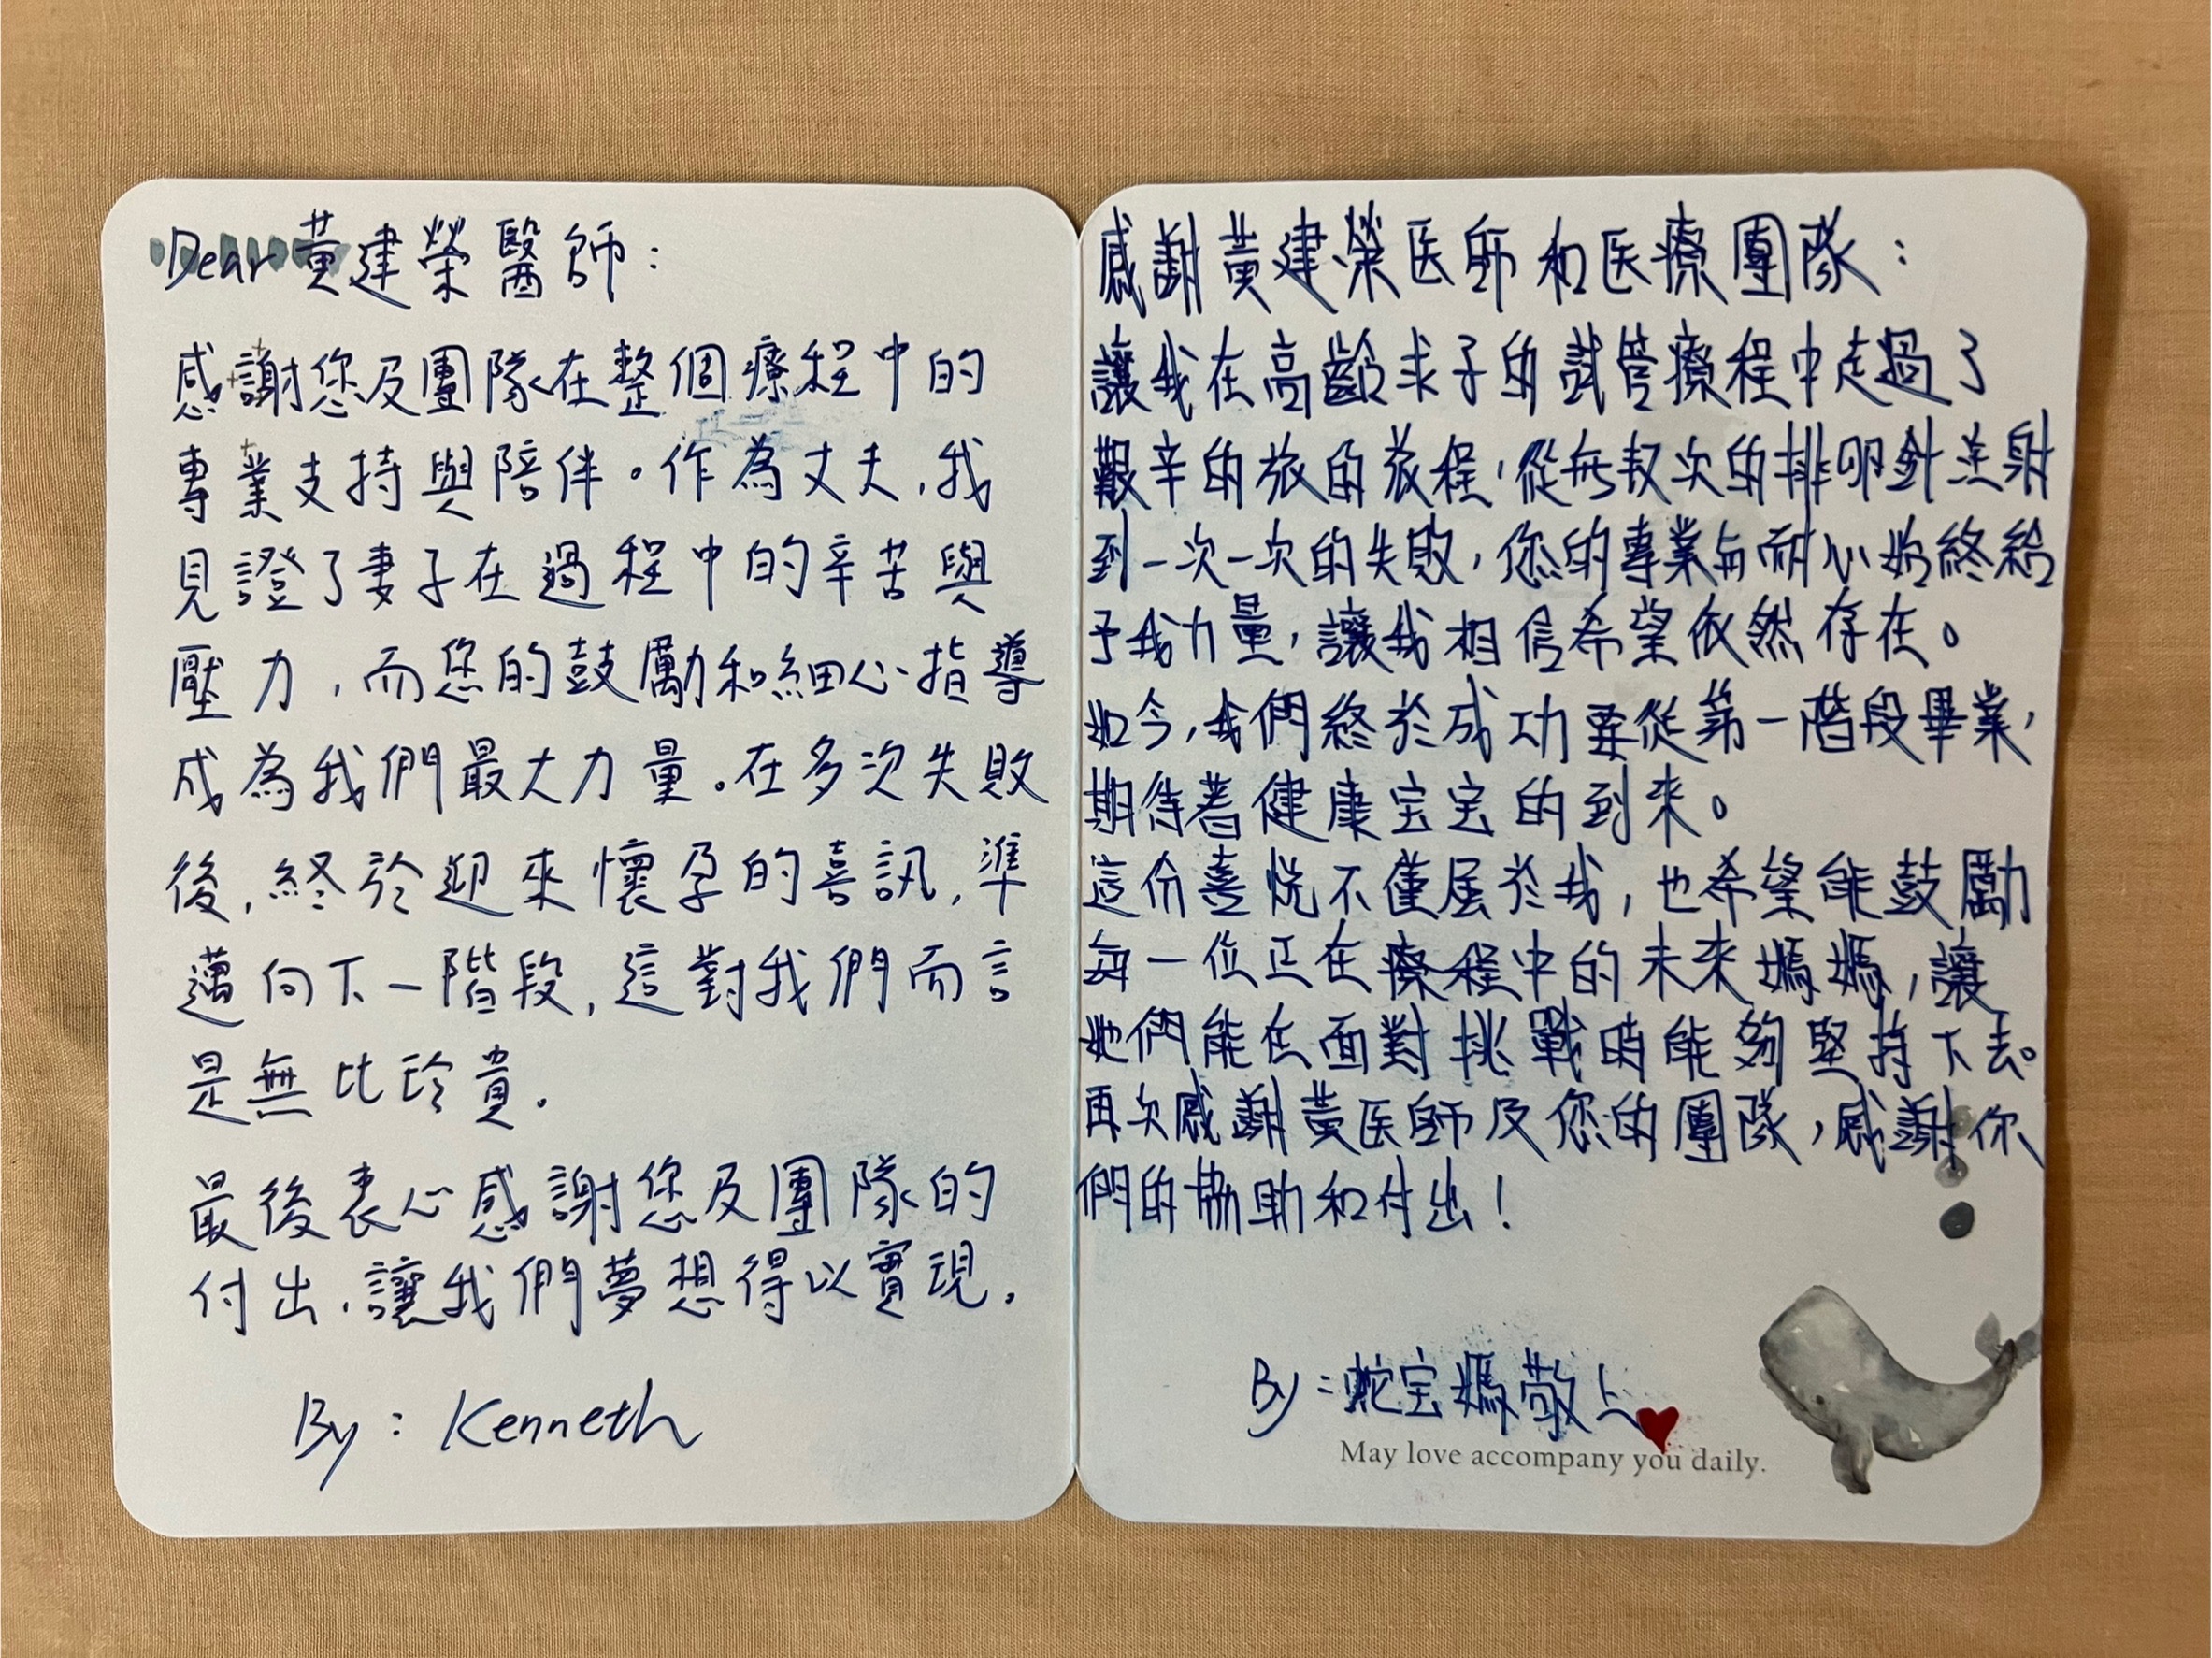 Dear 黃建榮醫師：
感謝您及團隊在整個療程中的
專業支持與陪伴。作為丈夫，我
見證了妻子在過程中的辛苦與
壓力，而您的鼓勵和細心指導
成為我們最大力量。在多次失敗
後，終於迎來懷孕的喜訊，準
邁向下一階段，這對我們而言
是無比珍貴。
最後衷心感謝您及團隊的
付出，讓我們夢想得以實現。
By：Kenneth
感謝黃建榮医師和医療團隊：
讓我在高齡求子的試管療程中走過了
艱辛的旅的旅程，從無数次的排卵針注射
到一次一次的失敗，您的專業与耐心始終給
予我力量，讓我相信希望依然存在。
如今，我們終於成功要從第一階段畢業，
期待著健康宝宝的到來。
這份喜悅不僅屬於我，也希望能鼓勵
每一位正在療程中的未來媽媽，讓
她們能在面對挑戰時能夠堅持下去。
再次感謝黃医師及您的團隊，感謝你
們的協助和付出！
By：蛇宝媽敬上
May love accompany you daily.